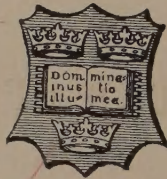 DOM
inus
illu=
mina=
tio
mea.